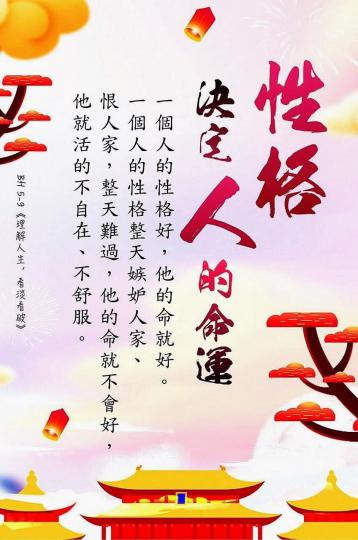 性格
決定人的命運
一個人的性格好，他的命就好。
一個人的性格整天嫉妒人家、
恨人家，整天難過，他的命就不會好，
他就活的不自在、不舒服。
BH 5-9《理解人生，看淡看破》